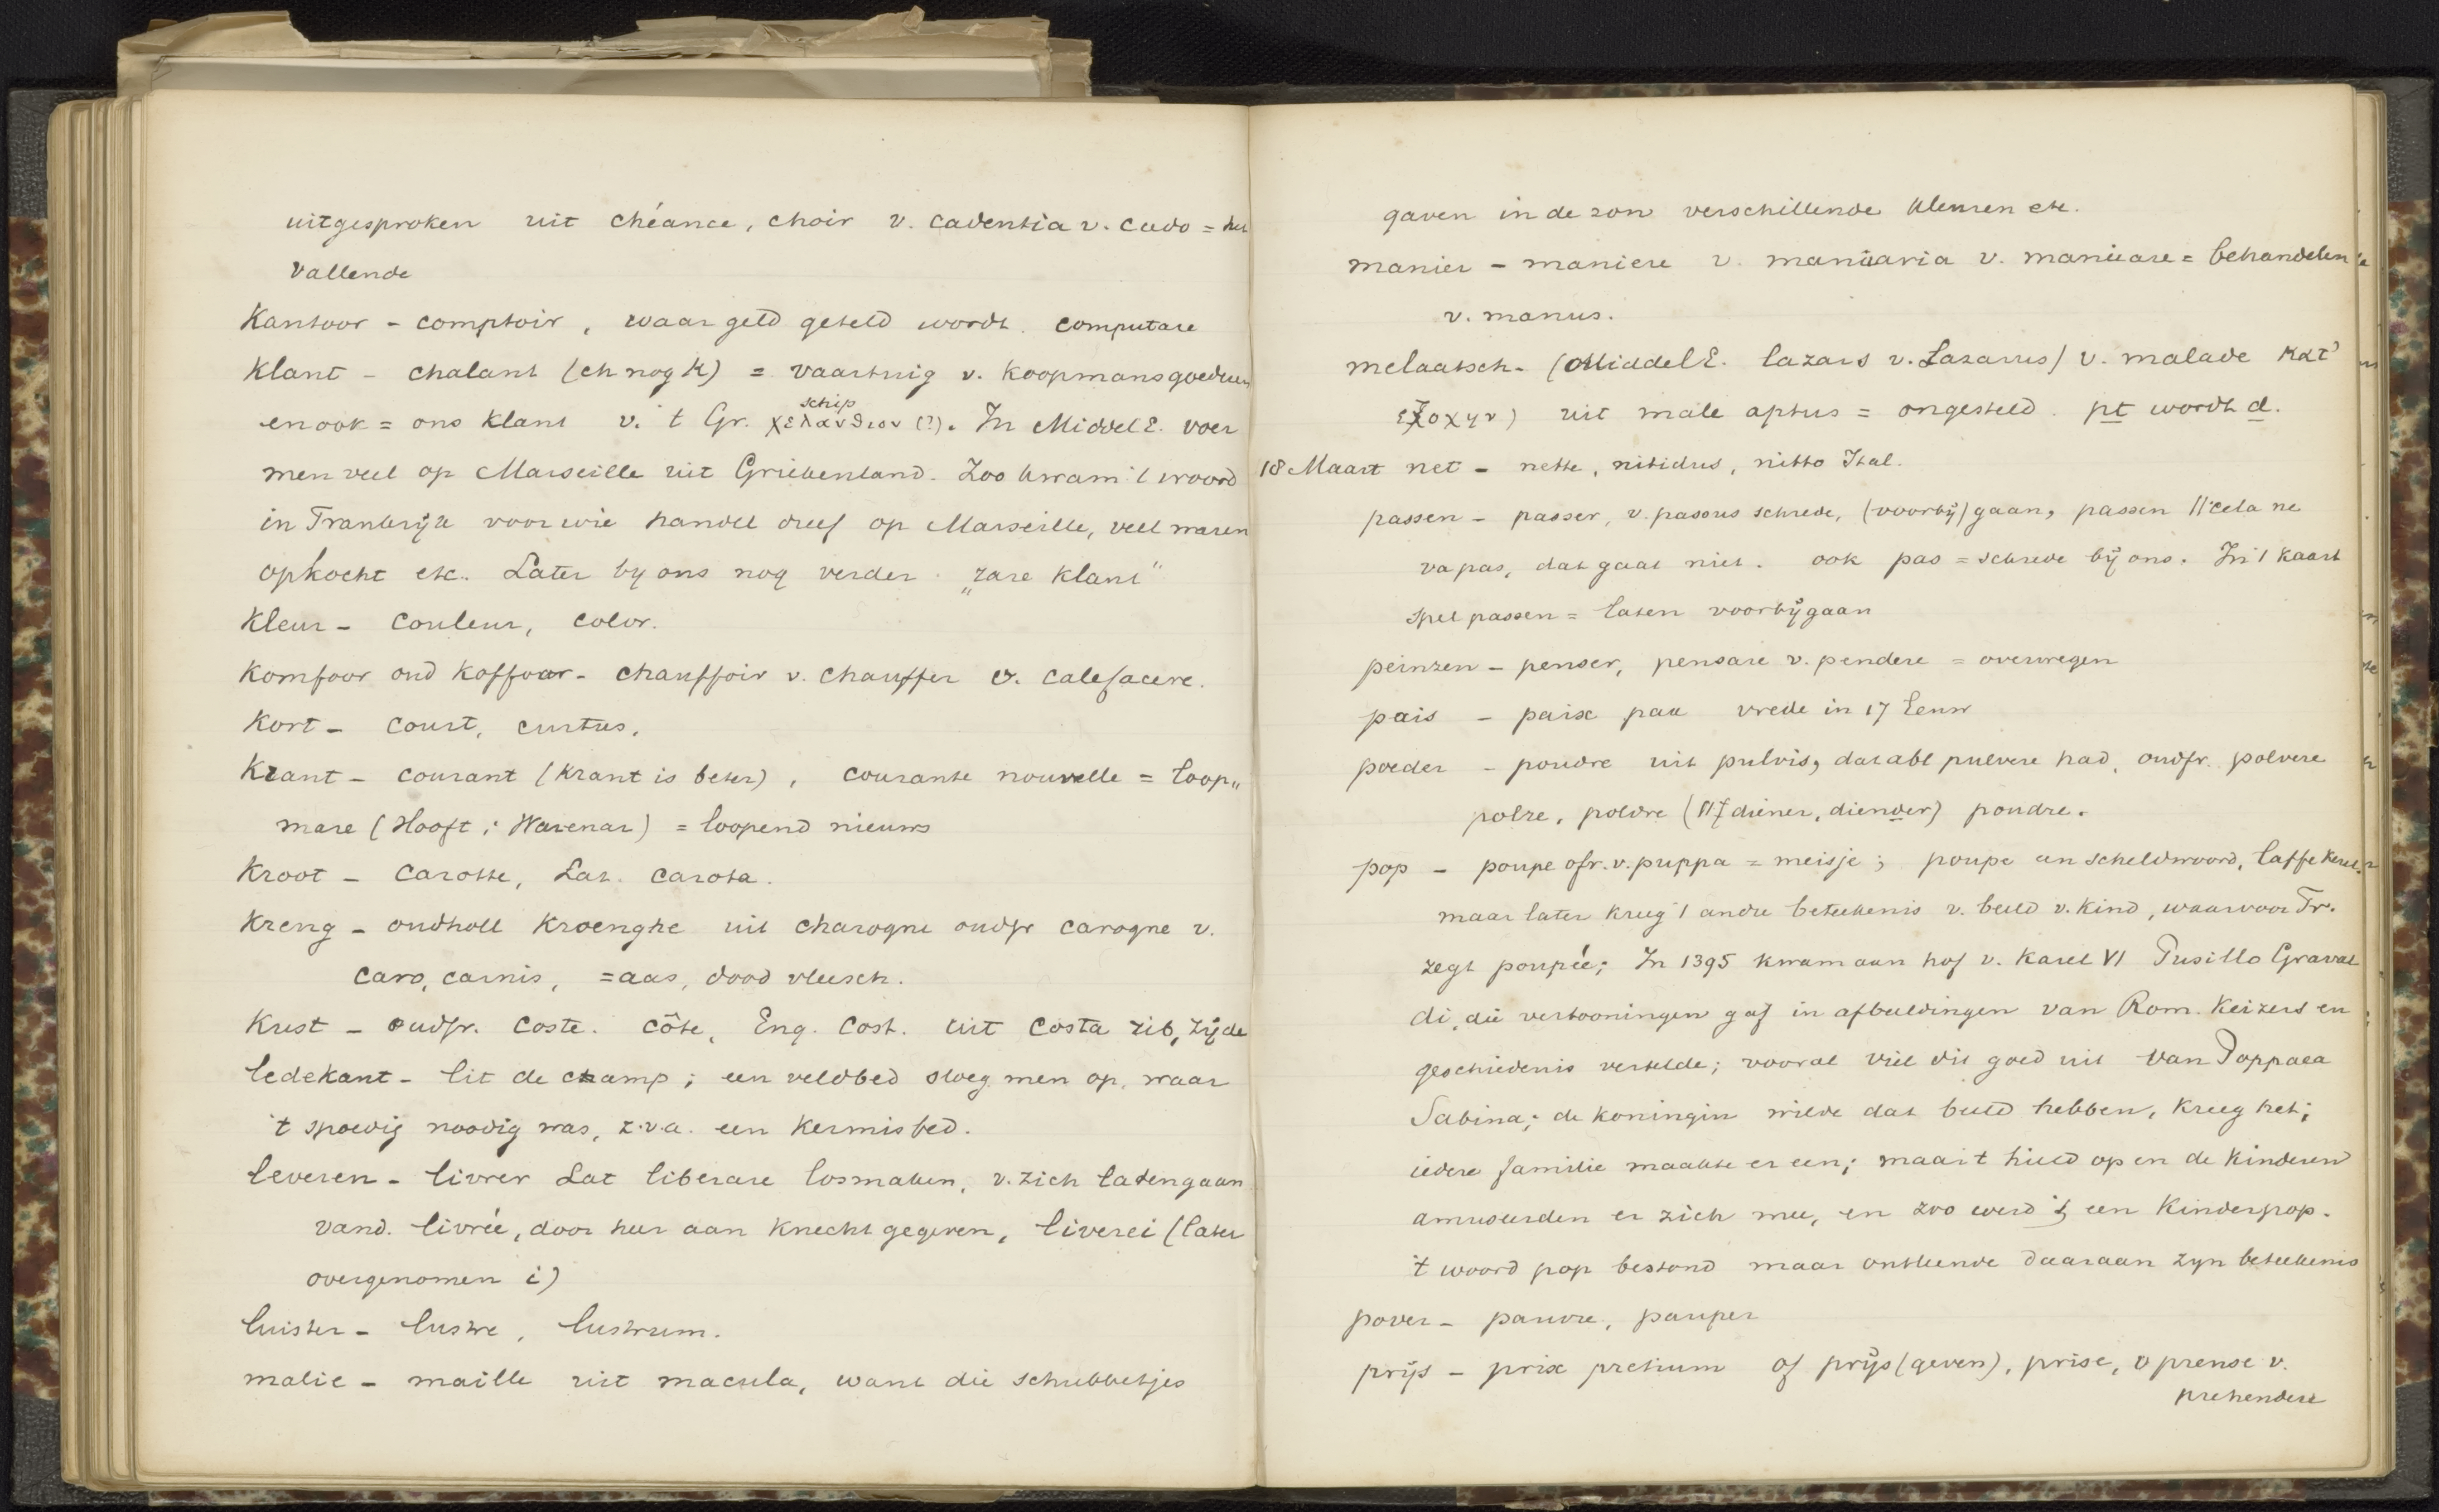 uitgesproken uit chéance, choir v. cadentia v. cado = het
vallende
Kantoor - comptoir, waar geld geteld wordt. computare
Klant - chalant (ch nog k) = vaartuig v. koopmansgoederen
en ook = ons klant v. 't Gr. χελανδιον (?). In Middel E. voer
schip
men veel op Marseille uit Griekenland. Zoo kwam 't woord
in Frankrijk voor wie handel dreef op Marseille, veel waren
opkocht etc. Later by ons nog verder „rare klant"
Kleur - couleur, color.
Komfoor oud Koffoor - chauffoir v. chauffer v. calefacere.
Kort - court, curtus,
Krant - courant (krant is beter), courante nouvelle = loop„
mare (Hooft; Warenar) = loopend nieuws
Kroot - carotte, Lat. carota.
Kreng - oudholl kroenghe uit charogne oudfr carogne v.
caro, carnis, = aas, dood vleesch.
Kust - oudfr. coste. côte, Eng. Cost. uit costa rib, zijde
ledekant - lit de champ; een veldbed sloeg men op, waar
't spoedig noodig was, z.v.a. een kermisbed.
leveren - livrer Lat liberare losmaken, v. zich laten gaan
vand. livrée, door heer aan knecht gegeven, liverei (later
overgenomen i)
luister - lustre, lustrum.
malie - maille uit macula, want die schubbetjes
gaven in de zon verschillende kleuren etc.
manier - maniere v. manuaria v. manuare = behandelen
v. manus.
melaatsch - (Middel E. lazars v. Lazarus) v. malade κατ'
εξοχην) uit male aptus = ongesteld. pt wordt d.
18 Maart net - nette, nitidus, nitto Ital.
passen - passer, v. passus schrede, (voorbij) gaan, passen // cela ne
va pas, dat gaat niet. ook pas = schrede bij ons. In 't kaart
spel passen = laten voorbijgaan
peinzen - penser, pensare v. pendere = overwegen
pais - paix pax vrede in 17 Eeuw
poeder - poudre uit pulvis, dat abl pulvere had, oudfr. polvere
polre, poldre (// diener, diender) poudre.
pop - poupe ofr. v. puppa = meisje; poupe een scheldwoord, laffe kerel,
maar later kreeg 't andre beteekenis v. beeld v. kind, waarvoor Fr.
zegt poupée; In 1395 kwam aan hof v. Karel VI Pusillo Graval
di, die vertooningen gaf in afbeeldingen van Rom. Keizers en
geschiedenis vertelde; vooral viel dit goed uit van Poppaea
Sabina; de koningin wilde dat beeld hebben, kreeg het;
iedere familie maakte er een; maar 't hield op en de kinderen
amuseerden er zich mee, en zoo werd 't een Kinderpop.
't woord pop bestond maar ontleende daaraan zyn beteekenis
pover - pauvre, pauper
prijs - prix pretium of prijs (geven), prise, v prense v.
prehendere